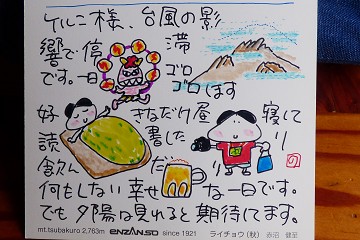 ケルニ様、台風の影
響で停滞
です。一日ゴロ
ゴロします
好きなだけ昼寝して
読書したり
飲んだり
何もしない幸せな一日です。
でも夕陽は見れると期待してます。
の
mt.tsubakuro 2,763m ENZANSO since 1921 ライチョウ(秋) 赤沼 健至